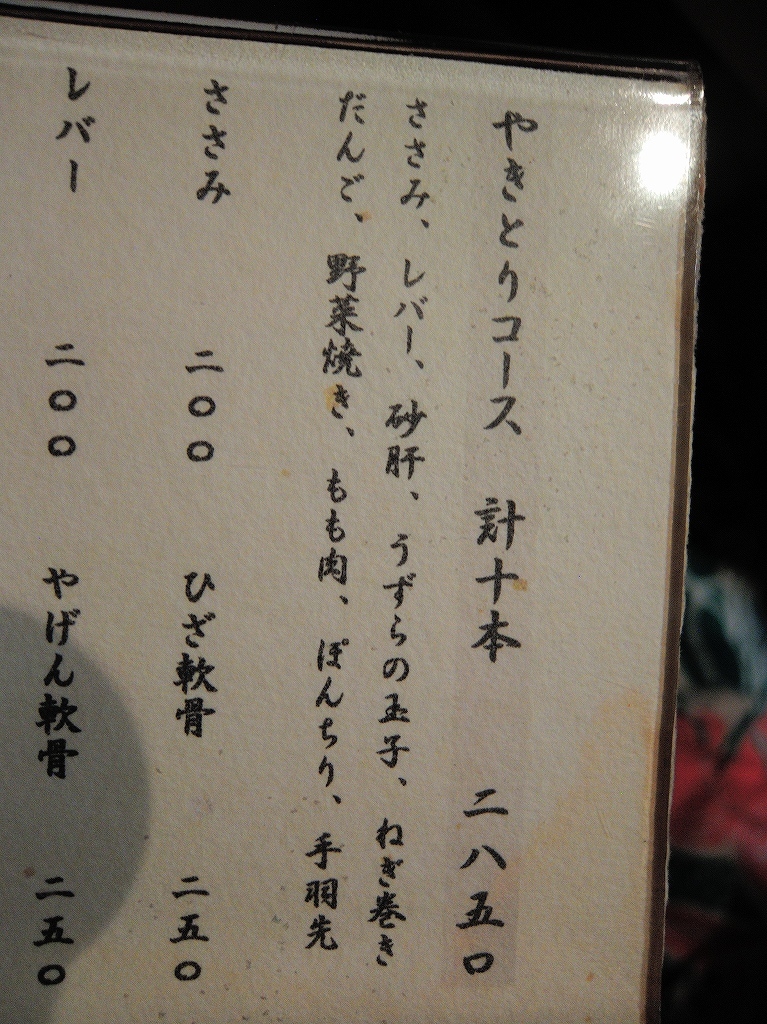 やきとりコース 計十本 二八五〇
ささみ、レバー、砂肝、うずらの玉子、ねぎ巻き
だんご、野菜焼き、もも肉、ぽんちり、手羽先
ささみ 二〇〇 ひざ軟骨 二五〇
レバー 二〇〇 やげん軟骨 二五〇